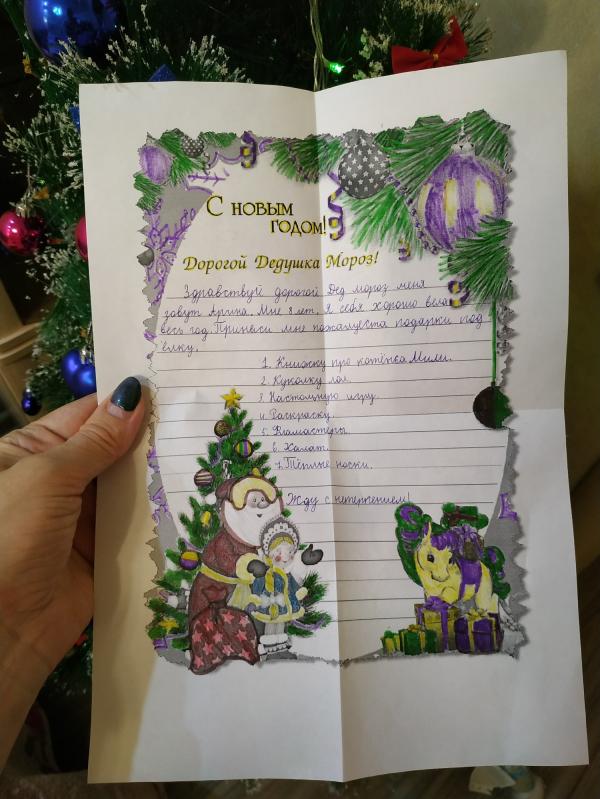 С новым
годом!
Дорогой Дедушка Мороз!
Здравствуй дорогой Дед мороз меня
зовут Арина. Мне 8 лет. Я себя хорошо вела
весь год. Принеси мне пожалуста подарки под
ёлку.
1. Книжку про котёнка Мили.
2. Куколку лол.
3. Настольную игру.
4. Раскраску.
5. Фломастеры.
6. Халат.
7. Тёплые носки.
Жду с нетерпением!